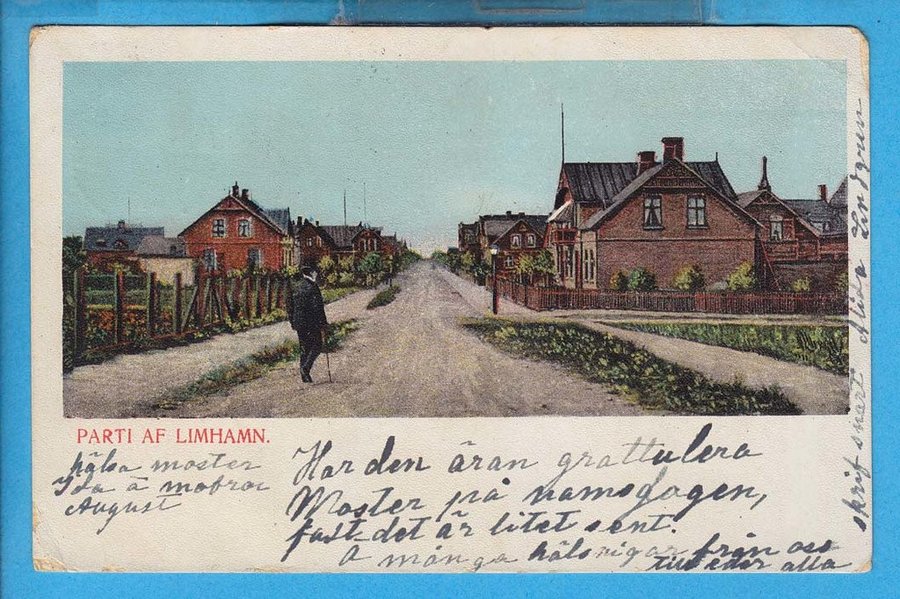 PARTI AF LIMHAMN.
hälsa moster
Ida å mobror
August
Har den äran grattulera
Moster på namsdagen,
fast det är litet sent.
å många hälsnigar från oss
till eder alla
skrif snart Alida Lovgren